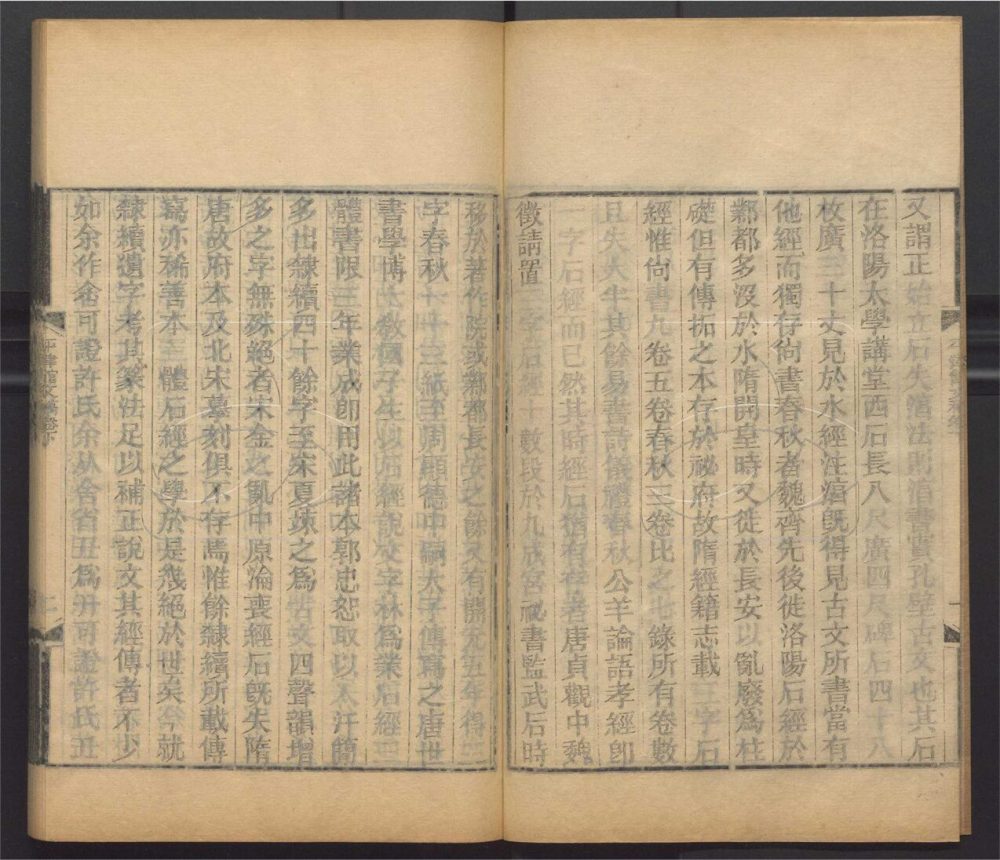 又謂正始立石失淳法則淳書實孔壁古文也其石
在洛陽太學講堂西石長八尺廣四尺碑石四十八
枚廣三十丈見於水經注淳既得見古文所書當有
他經而獨存尙書春秋者魏齊先後徙洛陽石經於
鄴都多沒於水隋開皇時又徙於長安以亂廢爲柱
礎但有傳拓之本存於祕府故隋經籍志載三字石
經惟尙書九卷五卷春秋三卷比之 錄所有卷數
且失大半其餘易書詩儀禮春秋公羊論語孝經即
一字石經而已然其時經石猶有存者唐貞觀中魏
徵請置三字石經十數段於九成宮祕書監武石時
移於著作院或鄴都長安之餘又有開元五年得三
字春秋 十三紙至周顯德中嗣太子傳寫之唐世
書學博士敎國子生以石經說文字林爲業石經三
體書限三年業成卽用此諸本郭忠恕取以入汗簡
多出隸續四十餘字至宋夏竦之爲 文四聲韻增
多之字無殊絕者宋金之亂中原淪喪經石旣失隋
唐故府本及北宋墓刻俱不存焉惟餘隸續所載傳
寫亦稀善本三體石經之學於是幾絕於世矣今就
隸續遺字考其篆法足以補正說文其經傳者不少
如余作 可證許氏余从舍省丑爲 可證許氏丑